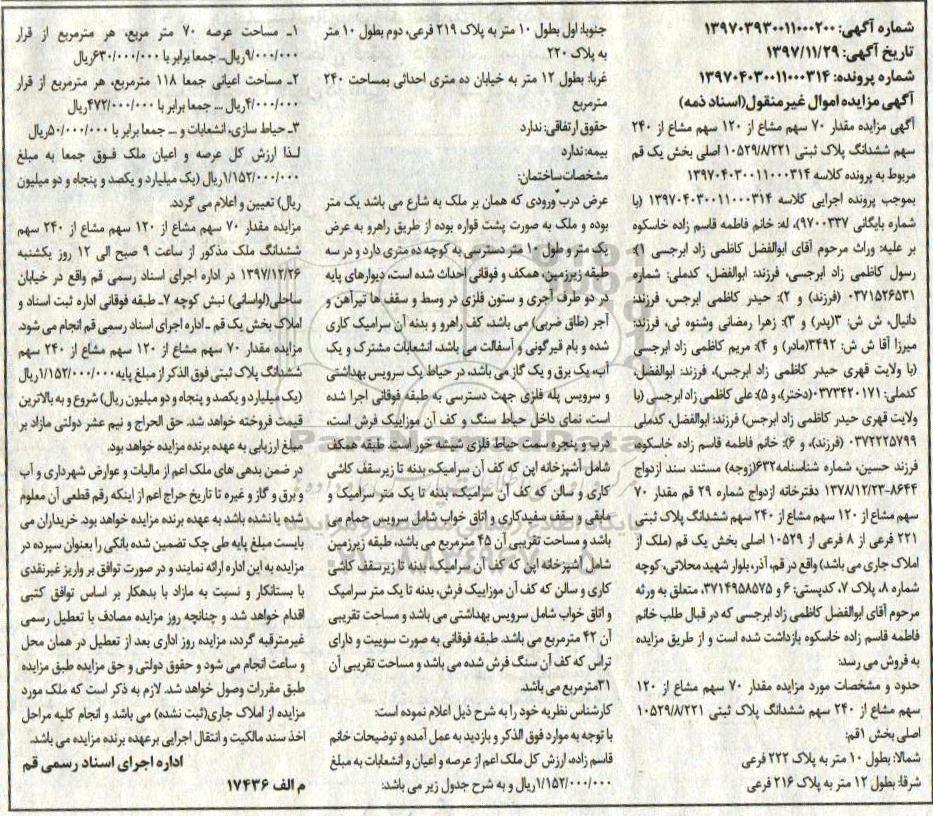 شماره آگهی: ۱۳۹۷۰۳۹۳۰۰۱۱۰۰۰۲۰۰
تاریخ آگهی: ۱۳۹۷/۱۱/۲۹
شماره پرونده: ۱۳۹۷۰۴۰۳۰۰۱۱۰۰۰۳۱۴
آگهی مزایده اموال غیرمنقول(اسناد ذمه)
آگهی مزایده مقدار ۷۰ سهم مشاع از ۱۲۰ سهم مشاع از ۲۴۰
سهم ششدانگ پلاک ثبتی ۱۰۵۲۹/۸/۲۲۱ اصلی بخش یک قم
مربوط به پرونده کلاسه ۱۳۹۷۰۴۰۳۰۰۱۱۰۰۰۳۱۴
بموجب پرونده اجرایی کلاسه ۱۳۹۷۰۴۰۳۰۰۱۱۰۰۰۳۱۴ (با
شماره بایگانی ۹۷۰۰۳۳۷)، له: خانم فاطمه قاسم زاده خاسکوه
بر علیه: وراث مرحوم آقای ابوالفضل کاظمی زاد ابرجسی ۱):
رسول کاظمی زاد ابرجسی، فرزند: ابوالفضل، کدملی: شماره
۰۳۷۱۵۲۶۵۳۱ (فرزند) و ۲): حیدر کاظمی ابرجس، فرزند:
دانیال، ش ش: ۳(پدر) و ۳): زهرا رمضانی وشنوه ئی، فرزند:
میرزا آقا ش ش: ۳۴۹۲(مادر) و ۴): مریم کاظمی زاد ابرجسی
(با ولایت قهری حیدر کاظمی زاد ابرجس)، فرزند: ابوالفضل،
کدملی: ۰۳۷۳۴۲۰۱۷۱(دختر)، و ۵): علی کاظمی زاد ابرجسی (با
ولایت قهری حیدر کاظمی زاد ابرجس) فرزند: ابوالفضل، کدملی
۰۳۷۲۲۲۵۷۹۹ (فرزند)، و ۶): خانم فاطمه قاسم زاده خاسکوه
فرزند حسین، شماره شناسنامه۶۳۲(زوجه) مستند سند ازدواج
۸۶۴۴-۱۳۷۸/۱۲/۲۳ دفترخانه ازدواج شماره ۲۹ قم مقدار ۷۰
سهم مشاع از ۱۲۰ سهم مشاع از ۲۴۰ سهم ششدانگ پلاک ثبتی
۲۲۱ فرعی از ۸ فرعی از ۱۰۵۲۹ اصلی بخش یک قم (ملک از
املاک جاری می باشد) واقع در قم، آذر، بلوار شهید محلاتی، کوچه
شماره ۸، پلاک ۷، کدپستی: ۶ و ۳۷۱۴۹۵۸۵۷۵، متعلق به ورثه
مرحوم آقای ابوالفضل کاظمی زاد ابرجسی که در قبال طلب خانم
فاطمه قاسم زاده خاسکوه بازداشت شده است و از طریق مزایده
به فروش می رسد:
حدود و مشخصات مورد مزایده مقدار ۷۰ سهم مشاع از ۱۲۰
سهم مشاع از ۲۴۰ سهم ششدانگ پلاک ثبتی ۱۰۵۲۹/۸/۲۲۱
اصلی بخش ۱قم:
شمالا: بطول ۱۰ متر به پلاک ۲۲۲ فرعی
شرقا: بطول ۱۲ متر به پلاک ۲۱۶ فرعی
جنوبا: اول بطول ۱۰ متر به پلاک ۲۱۹ فرعی، دوم بطول ۱۰ متر
به پلاک ۲۲۰
غربا: بطول ۱۲ متر به خیابان ده متری احداثی بمساحت ۲۴۰
مترمربع
حقوق ارتفاقی: ندارد
بیمه: ندارد
مشخصات ساختمان:
عرض درب ورودی که همان بر ملک به شارع می باشد یک متر
بوده و ملک به صورت پشت قواره بوده از طریق راهرو به عرض
یک متر و طول ۱۰ متر دسترسی به کوچه ده متری دارد و در سه
طبقه زیرزمین، همکف و فوقانی احداث شده است، دیوارهای پایه
در دو طرف آجری و ستون فلزی در وسط و سقف ها تیرآهن و
آجر (طاق ضربی) می باشد، کف راهرو و بدنه آن سرامیک کاری
شده و بام قیرگونی و آسفالت می باشد، انشعابات مشترک و یک
آب، یک برق و یک گاز می باشد، در حیاط یک سرویس بهداشتی
و سرویس پله فلزی جهت دسترسی به طبقه فوقانی اجرا شده
است، نمای داخل حیاط سنگ و کف آن موزاییک فرش است،
درب و پنجره سمت حیاط فلزی شیشه خور است طبقه همکف
شامل آشپزخانه اپن که کف آن سرامیک، بدنه تا زیرسقف کاشی
کاری و سالن که کف آن سرامیک، بدنه تا یک متر سرامیک و
مابقی و سقف سفیدکاری و اتاق خواب شامل سرویس حمام می
باشد و مساحت تقریبی آن ۴۵ مترمربع می باشد، طبقه زیرزمین
شامل آشپزخانه اپن که کف آن سرامیک، بدنه تا زیرسقف کاشی
کاری و سالن که کف آن موزاییک فرش، بدنه تا یک متر سرامیک
و اتاق خواب شامل سرویس بهداشتی می باشد و مساحت تقریبی
آن ۴۲ مترمربع می باشد. طبقه فوقانی به صورت سوییت و دارای
تراس که کف آن سنگ فرش شده می باشد و مساحت تقریبی آن
۳۱مترمربع می باشد.
کارشناس نظریه خود را به شرح ذیل اعلام نموده است:
با توجه به موارد فوق الذکر و بازدید به عمل آمده و توضیحات خانم
قاسم زاده، ارزش کل ملک اعم از عرصه و اعیان و انشعابات به مبلغ
۱/۱۵۲/۰۰۰/۰۰۰ریال و به شرح جدول زیر می باشد:
۱ـ مساحت عرصه ۷۰ متر مربع، هر مترمربع از قرار
۹/۰۰۰/۰۰۰ریال... جمعا برابر با ۶۳۰/۰۰۰/۰۰۰ریال
۲ـ مساحت اعیانی جمعا ۱۱۸ مترمربع، هر مترمربع از قرار
۴/۰۰۰/۰۰۰ریال ... جمعا برابر با ۴۷۲/۰۰۰/۰۰۰ریال
۳ـ حیاط سازی، انشعابات و ... جمعا برابر با ۵۰/۰۰۰/۰۰۰ریال
لـذا ارزش کل عرصه و اعیان ملک فـوق جمعا به مبلغ
۱/۱۵۲/۰۰۰/۰۰۰ریال (یک میلیارد و یکصد و پنجاه و دو میلیون
ریال) تعیین و اعلام می گردد.
مزایده مقدار ۷۰ سهم مشاع از ۱۲۰ سهم مشاع از ۲۴۰ سهم
ششدانگ ملک مذکور از ساعت ۹ صبح الی ۱۲ روز یکشنبه
۱۳۹۷/۱۲/۲۶ در اداره اجرای اسناد رسمی قم واقع در خیابان
ساحلی(لواسانی) نبش کوچه ۷ـ طبقه فوقانی اداره ثبت اسناد و
املاک بخش یک قم ـ اداره اجرای اسناد رسمی قم انجام می شود.
مزایده مقدار ۷۰ سهم مشاع از ۱۲۰ سهم مشاع از ۲۴۰ سهم
ششدانگ پلاک ثبتی فوق الذکر از مبلغ پایه ۱/۱۵۲/۰۰۰/۰۰۰ریال
(یک میلیارد و یکصد و پنجاه و دو میلیون ریال) شروع و به بالاترین
قیمت فروخته خواهد شد. حق الحراج و نیم عشر دولتی مازاد بر
مبلغ ارزیابی به عهده برنده مزایده خواهد بود.
در ضمن بدهی های ملک اعم از مالیات و عوارض شهرداری و آب
و برق و گاز و غیره تا تاریخ حراج اعم از اینکه رقم قطعی آن معلوم
شده یا نشده باشد به عهده برنده مزایده خواهد بود. خریداران می
بایست مبلغ پایه طی چک تضمین شده بانکی را بعنوان سپرده در
مزایده به این اداره ارائه نمایند و در صورت توافق بر واریز غیرنقدی
با بستانکار و نسبت به مازاد با بدهکار بر اساس توافق کتبی
اقدام خواهد شد. و چنانچه روز مزایده مصادف با تعطیل رسمی
غیرمترقبه گردد، مزایده روز اداری بعد از تعطیل در همان محل
و ساعت انجام می شود و حقوق دولتی و حق مزایده طبق مزایده
طبق مقررات وصول خواهد شد. لازم به ذکر است که ملک مورد
مزایده از املاک جاری(ثبت نشده) می باشد و انجام کلیه مراحل
اخذ سند مالکیت و انتقال اجرایی برعهده برنده مزایده می باشد.
اداره اجرای اسناد رسمی قم
م الف ۱۷۴۳۶